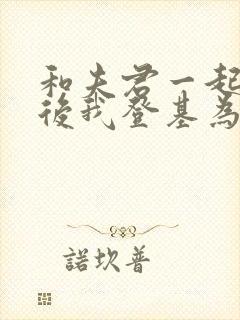 和夫君一起
後我登基為
諾坎普